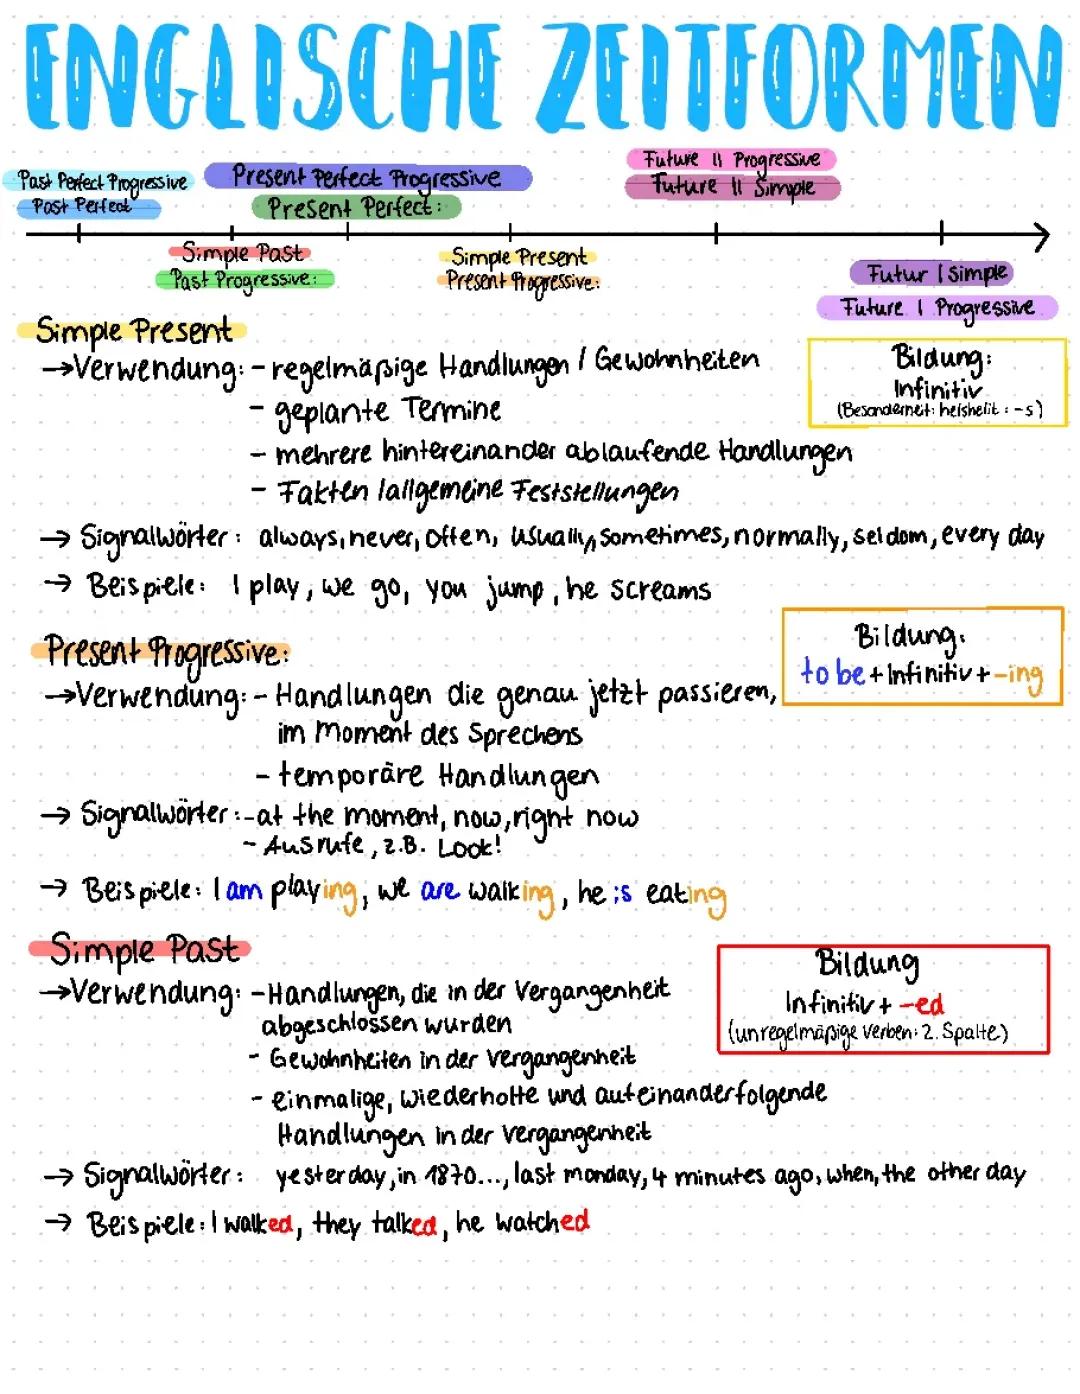 ENGLISCHE ZEITFORMEN
Future II Progressive
Future II Simple
Past Perfect Progressive
Past Perfect
Present Perfect Progressive
Present Perfect:
Simple Past
Past Progressive:
Simple Present
Present Progressive:
Futur I Simple
Future I Progressive
Simple Present
→Verwendung: - regelmäßige Handlungen / Gewohnheiten
- geplante Termine
- mehrere hintereinander ablaufende Handlungen
- Fakten / allgemeine Feststellungen
Bildung:
Infinitiv
(Besonderheit: he/she/it: -s)
→ Signalwörter: always, never, often, usually, sometimes, normally, seldom, every day
→ Beispiele: I play, we go, you jump, he screams
Present Progressive:
→Verwendung: - Handlungen die genau jetzt passieren,
im Moment des Sprechens
- temporäre Handlungen
Bildung:
to be + Infinitiv + -ing
→ Signalwörter: - at the moment, now, right now
- Ausrufe, z.B. Look!
→ Beispiele: I am playing, we are walking, he is eating
Simple Past
→Verwendung: - Handlungen, die in der Vergangenheit
abgeschlossen wurden
- Gewohnheiten in der Vergangenheit
- einmalige, wiederholte und aufeinanderfolgende
Handlungen in der Vergangenheit
Bildung
Infinitiv + -ed
(unregelmäßige Verben: 2. Spalte)
→ Signalwörter: yesterday, in 1870..., last monday, 4 minutes ago, when, the other day
→ Beispiele: I walked, they talked, he watched